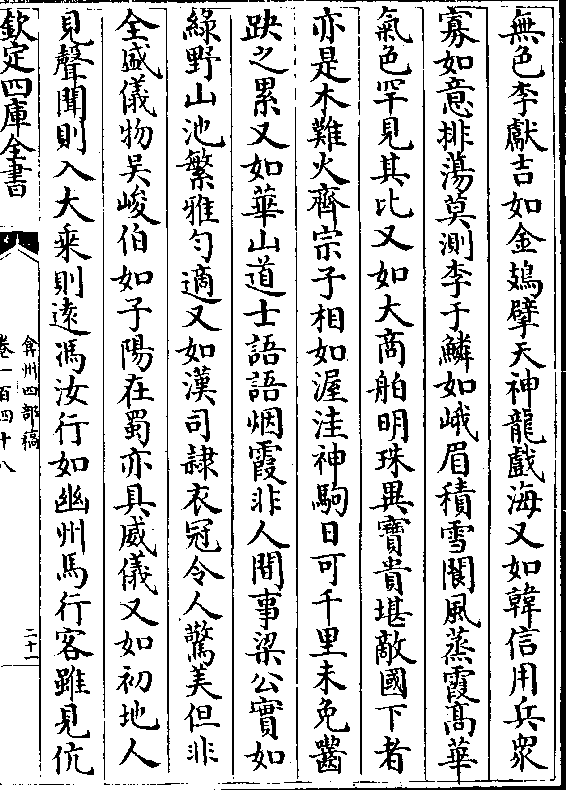 無色李獻吉如金鳷擘天神龍戲海又如韓信用兵衆
寡如意排蕩莫測李于鱗如峨眉積雪閬風蒸霞髙華
氣色罕見其比又如大商舶明珠異寳貴堪敵國下者
亦是木難火齊宗子相如渥洼神駒日可千里未免齧
趹之累又如華山道士語語烟霞非人間事梁公實如
綠野山池繁雅勻適又如漢司隷衣冠令人驚美但非
全盛儀物吳峻伯如子陽在蜀亦具威儀又如初地人
見聲聞則入大乘則逺馮汝行如幽州馬行客雖見伉
欽定四庫全書
弇州四部稿
卷一百四十八
二十一